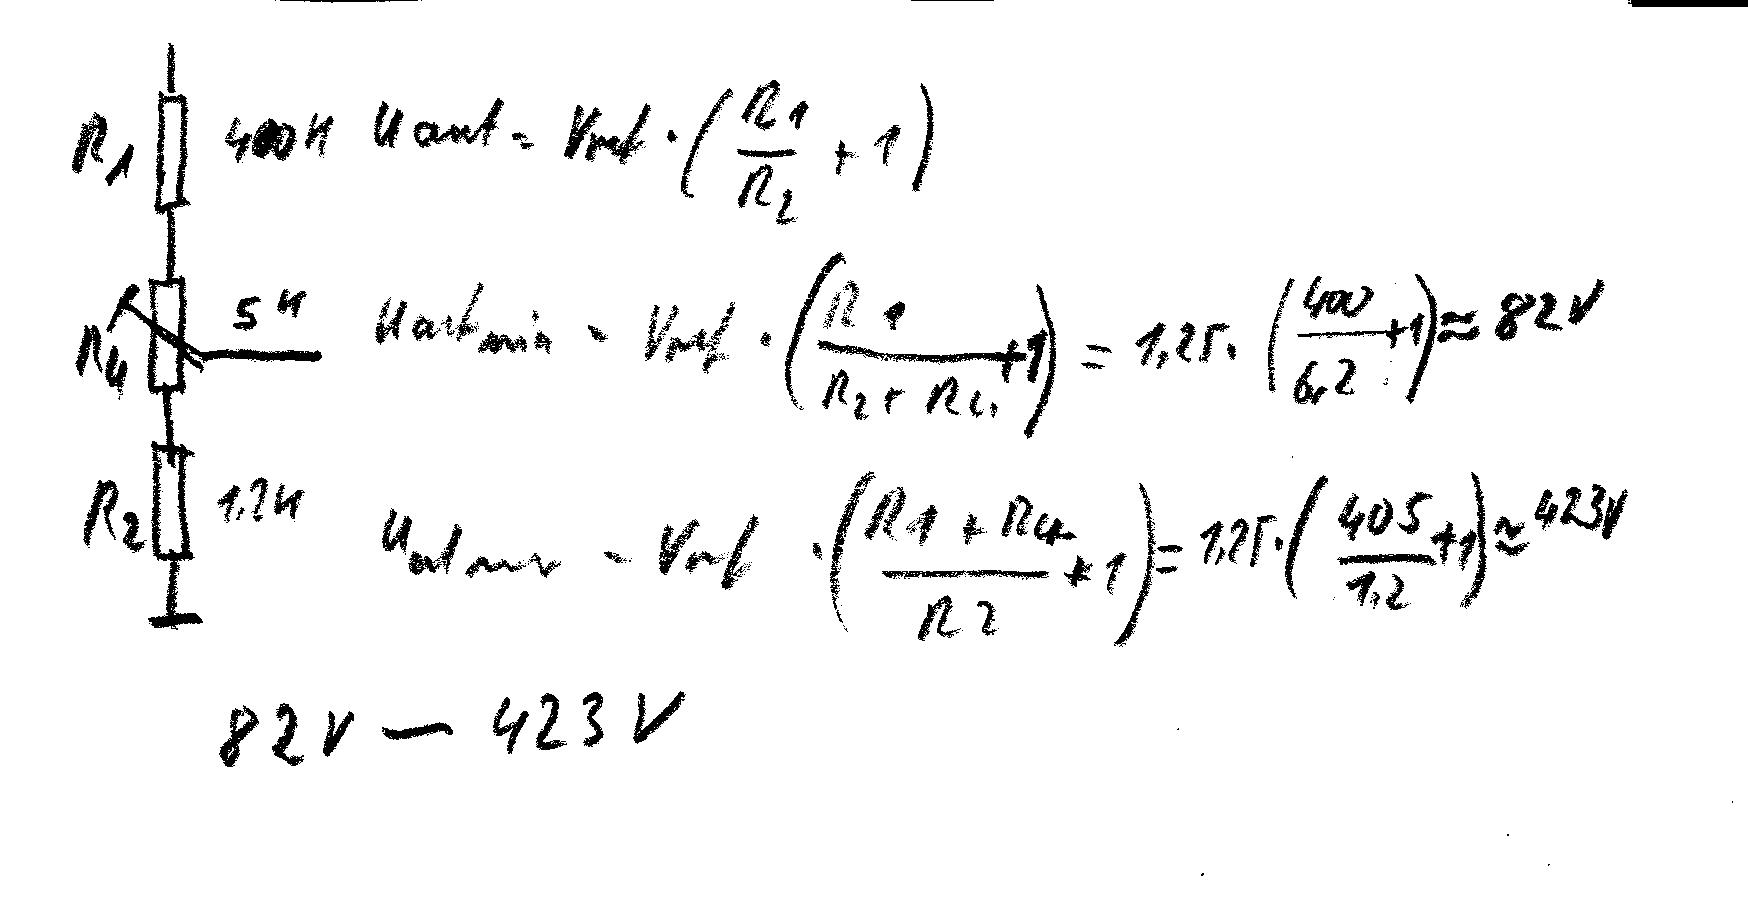 R1 400K Uout = Vref · (R1/R2 + 1)
R4 5K Uoutmin = Vref · (R1/(R2 + R4) + 1) = 1,25 · (400/6,2 + 1) ≈ 82V
R2 1,2K Uoutmax = Vref · ((R1 + R4)/R2 + 1) = 1,25 · (405/1,2 + 1) ≈ 423V
82V — 423V